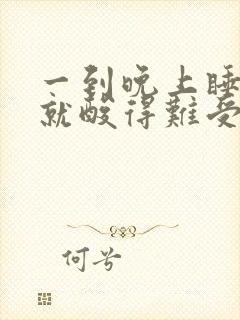 一到晚上睡
就酸得難受
何兮